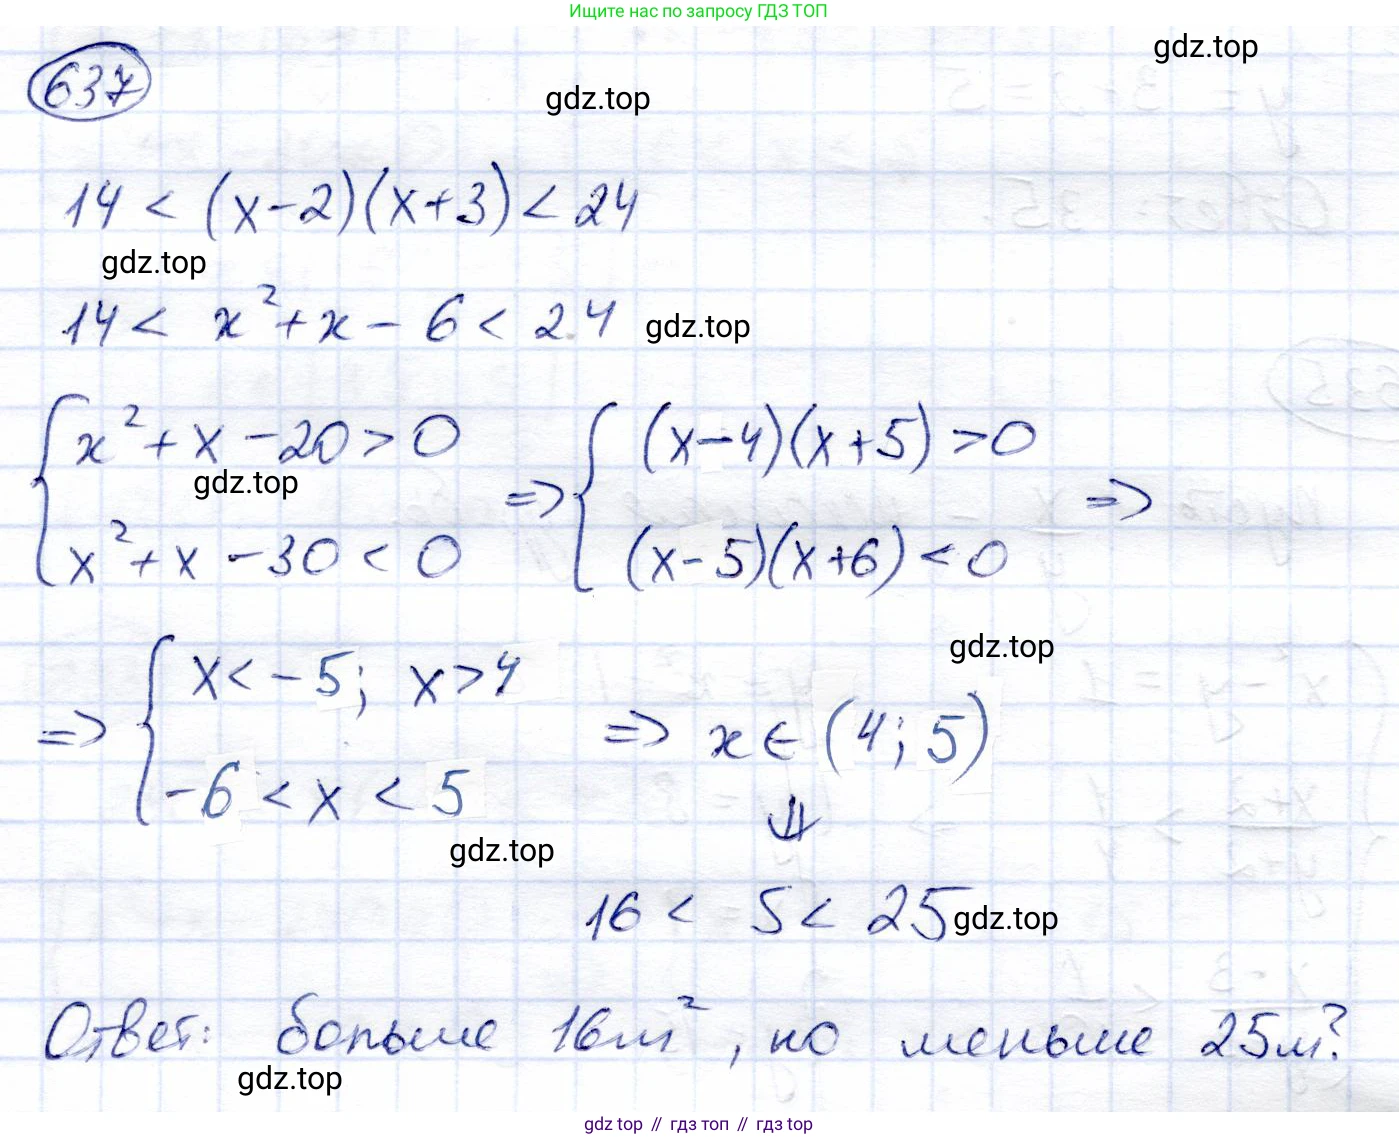 Ищите нас по запросу ГДЗ ТОП
gdz.top
637
gdz.top
14 < (x-2)(x+3) < 24
gdz.top
14 < x²+x-6 < 24
gdz.top
{ x²+x-20>0 => { (x-4)(x+5)>0 =>
gdz.top
{ x²+x-30<0 { (x-5)(x+6)<0
gdz.top
=> { x<-5; x>4 => x∈(4;5)
{ -6<x<5 ⇓
gdz.top
16 < S < 25
gdz.top
Ответ: больше 16м², но меньше 25м².
gdz.top
gdz top // гдз топ // гдз top